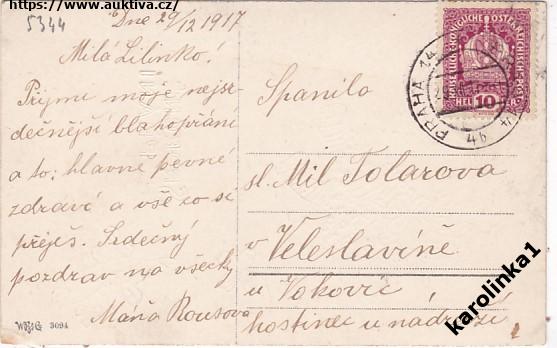 https://www.auktiva.cz/
5344
Dne 29/12 1917
Milá Lilinko!
Přijmi moje nejsr-
dečnější blahopřání
a to: hlavně pevné
zdraví a vše co si
přeješ. Srdečný
pozdrav na všecky
Máňa Rousova
W.S.&G 3094
Spanilo
sl. Mil Tolarova
v Veleslavíně
u Vokovic
hostinec u nádraží
KAISERLICHE KÖNIGLICHE ÖSTERREICHISCHE POST
HELLER 10
PRAHA 14
4b
karolinka1